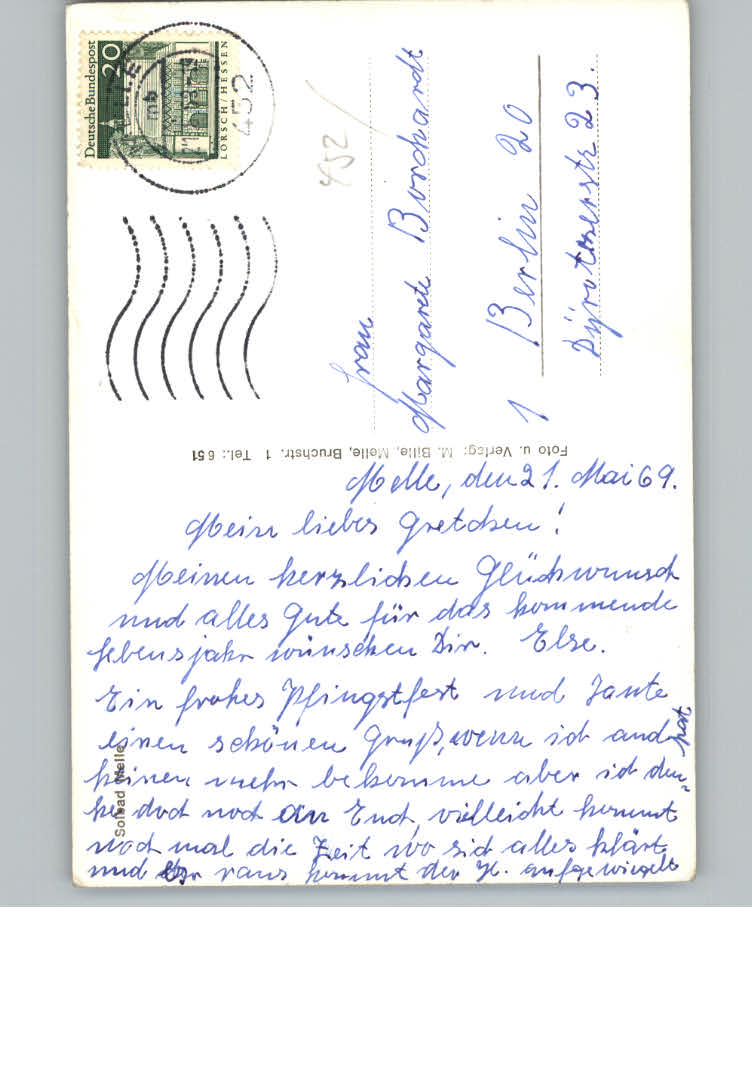 Deutsche Bundespost
20
LORSCH/HESSEN
452
452
Frau
Margarete Borchardt
1 Berlin 20
Dyrotzerstr 23.
Foto u. Verlag: M. Bille, Melle, Bruchstr. 1 Tel.: 651
Solbad Melle
Melle, den 21. Mai 69.
Mein liebes Gretchen!
Meinen herzlichen Glückwunsch
und alles Gute für das kommende
Lebensjahr wünschen Dir. Else.
Ein frohes Pfingstfest und Tante
einen schönen Gruß, wenn ich auch
keinen mehr bekomme aber ich den-
ke doch noch an Euch, vielleicht kommt
noch mal die Zeit wo sich alles klärt
und raus kommt der H. aufgewiegelt
hat